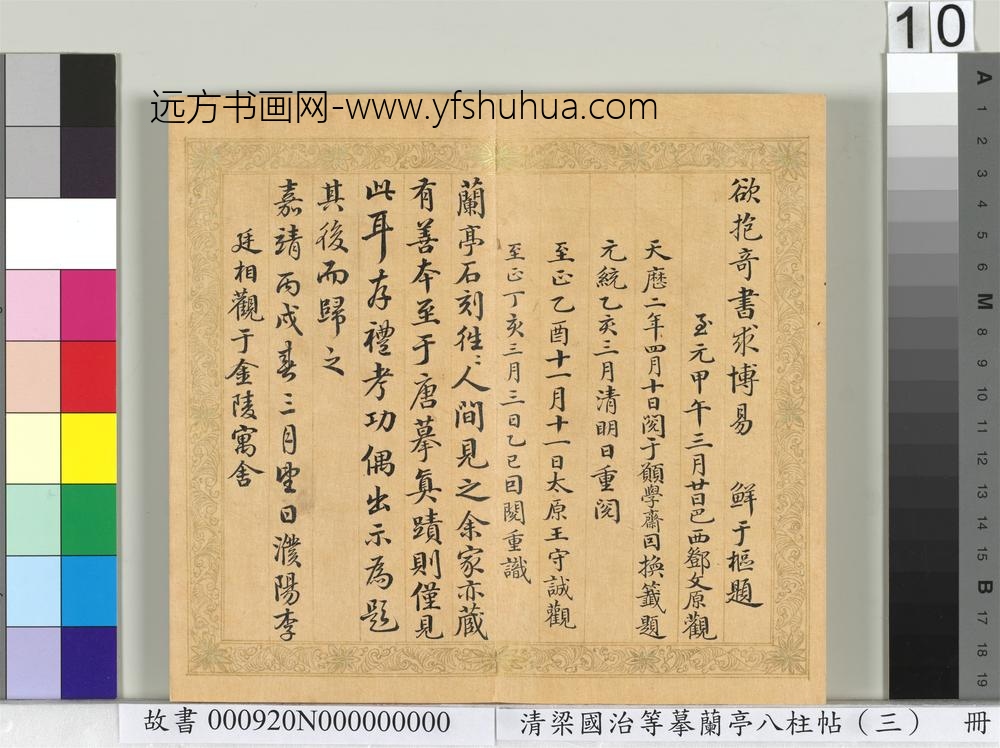 10
远方书画网-www.yfshuhua.com
欲抱奇書求博易 鮮于樞題
至元甲午三月廿日巴西鄧文原觀
天曆二年四月十日閲于願學齋因換籤題
元統乙亥三月清明日重閲
至正乙酉十一月十一日太原王守誠觀
至正丁亥三月三日乙巳因閲重識
蘭亭石刻徃〻人間見之余家亦蔵
有善本至于唐摹真蹟則僅見
此耳存禮考功偶出示為題
其後而歸之
嘉靖丙戌春三月望日濮陽李
廷相觀于金陵寓舍
A 1 2 3 4 5 6 M 8 9 10 11 12 13 14 15 B 17 18 19
故書 000920N000000000
清梁國治等摹蘭亭八柱帖（三） 冊